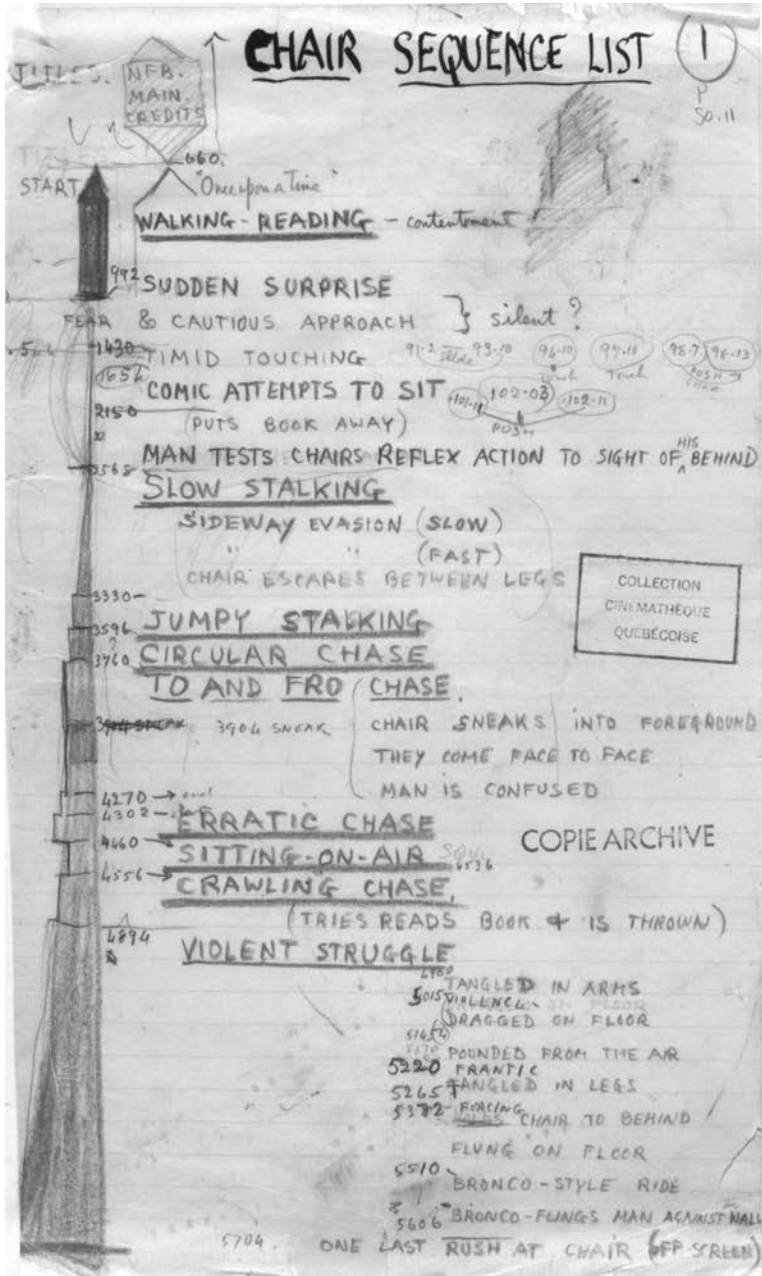 CHAIR SEQUENCE LIST
1
P
50.11
TITLES.
NFB.
MAIN.
CREDITS
660.
START
"Once upon a Time"
WALKING - READING - contentment
992
SUDDEN SURPRISE
FEAR & CAUTIOUS APPROACH } silent?
1430
TIMID TOUCHING
91.2 93.10 96.10 97.11 98.7 96.13
Touch Touch PUSH
1654
COMIC ATTEMPTS TO SIT
101.11 102-03 102.11
2150
(PUTS BOOK AWAY)
PUSH
MAN TESTS CHAIRS REFLEX ACTION TO SIGHT OF HIS BEHIND
2568
SLOW STALKING
SIDEWAY EVASION (SLOW)
" " (FAST)
CHAIR ESCAPES BETWEEN LEGS
COLLECTION
CINÉMATHÈQUE
QUÉBÉCOISE
3330-
3596
JUMPY STALKING
3760
CIRCULAR CHASE
TO AND FRO CHASE.
3904 SNEAK
CHAIR SNEAKS INTO FOREGROUND
THEY COME FACE TO FACE
MAN IS CONFUSED
4270
4302
ERRATIC CHASE
COPIE ARCHIVE
4460
SITTING-ON-AIR
4536
4556
CRAWLING CHASE,
(TRIES READS BOOK & IS THROWN)
4894
VIOLENT STRUGGLE
4980
TANGLED IN ARMS
5015
VIOLENCE-
DRAGGED ON FLOOR
5165
POUNDED FROM THE AIR
5220 FRANTIC
5265 TANGLED IN LEGS
5372 FORCING
CHAIR TO BEHIND
FLUNG ON FLOOR
5510
BRONCO-STYLE RIDE
5606 BRONCO-FLINGS MAN AGAINST WALL
5704. ONE LAST RUSH AT CHAIR (OFF-SCREEN)